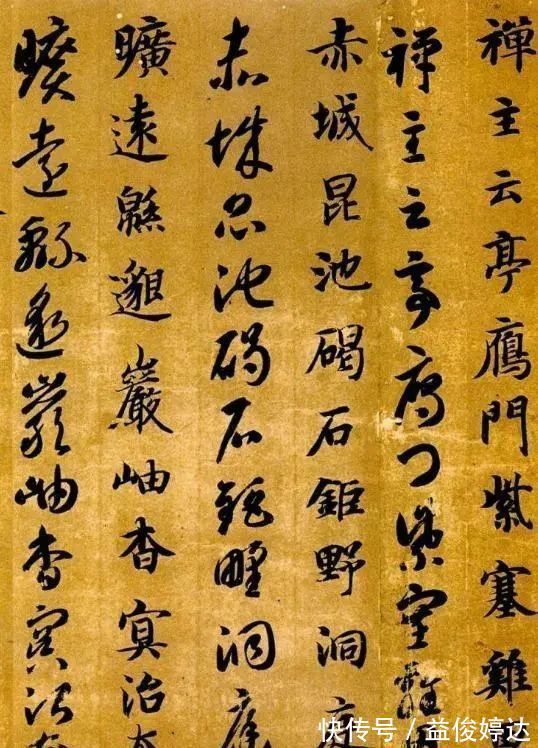 禪主云亭鴈門紫塞雞
禪主云亭鴈門紫塞雞
赤城昆池碣石鉅野洞
赤城昆池碣石鉅野洞庭
曠遠緜邈巖岫杳冥治
曠遠緜邈巖岫杳冥治
快传号 / 益俊婷达